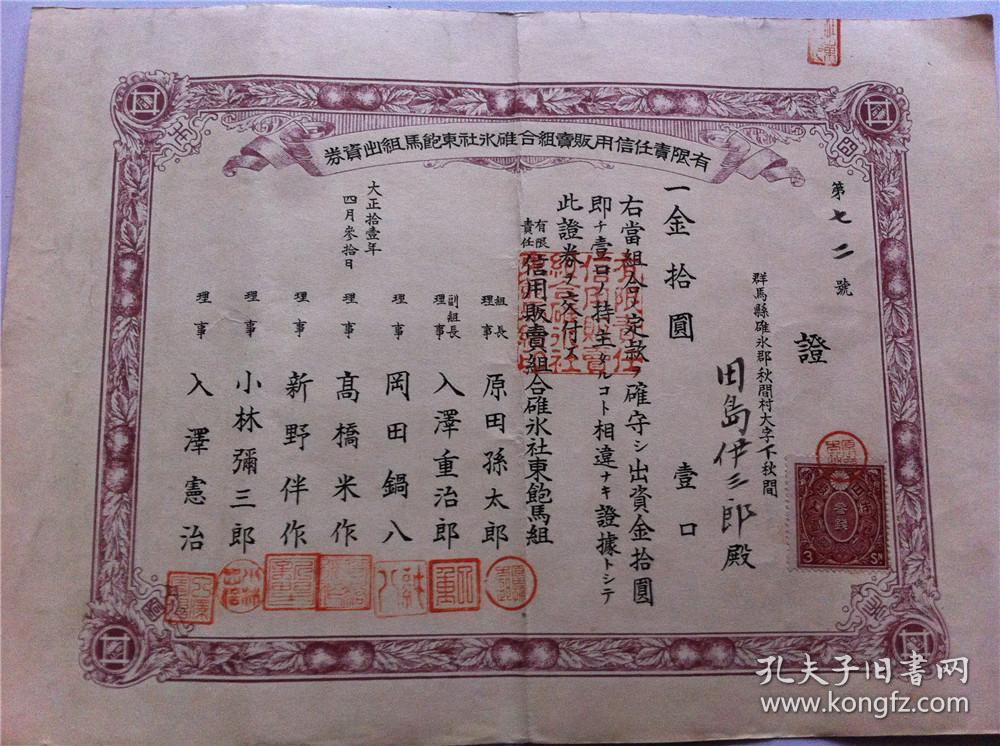 有限責任信用販賣組合碓氷社東飽馬組出資券
第七二號
證
群馬縣碓氷郡秋間村大字下秋間
田島伊三郎殿
一金拾圓 壹口
右當組合ノ定款ヲ確守シ出資金拾圓
即チ壹口ノ持主タルコト相違ナキ證據トシテ
此證券ヲ交付ス
有限責任信用販賣組合碓氷社東飽馬組
大正拾壹年
四月參拾日
組長理事 原田孫太郎
副組長理事 入澤重治郎
理事 岡田鍋八
理事 高橋米作
理事 新野伴作
理事 小林彌三郎
理事 入澤憲治
參錢
3 SN
孔夫子旧书网
www.kongfz.com